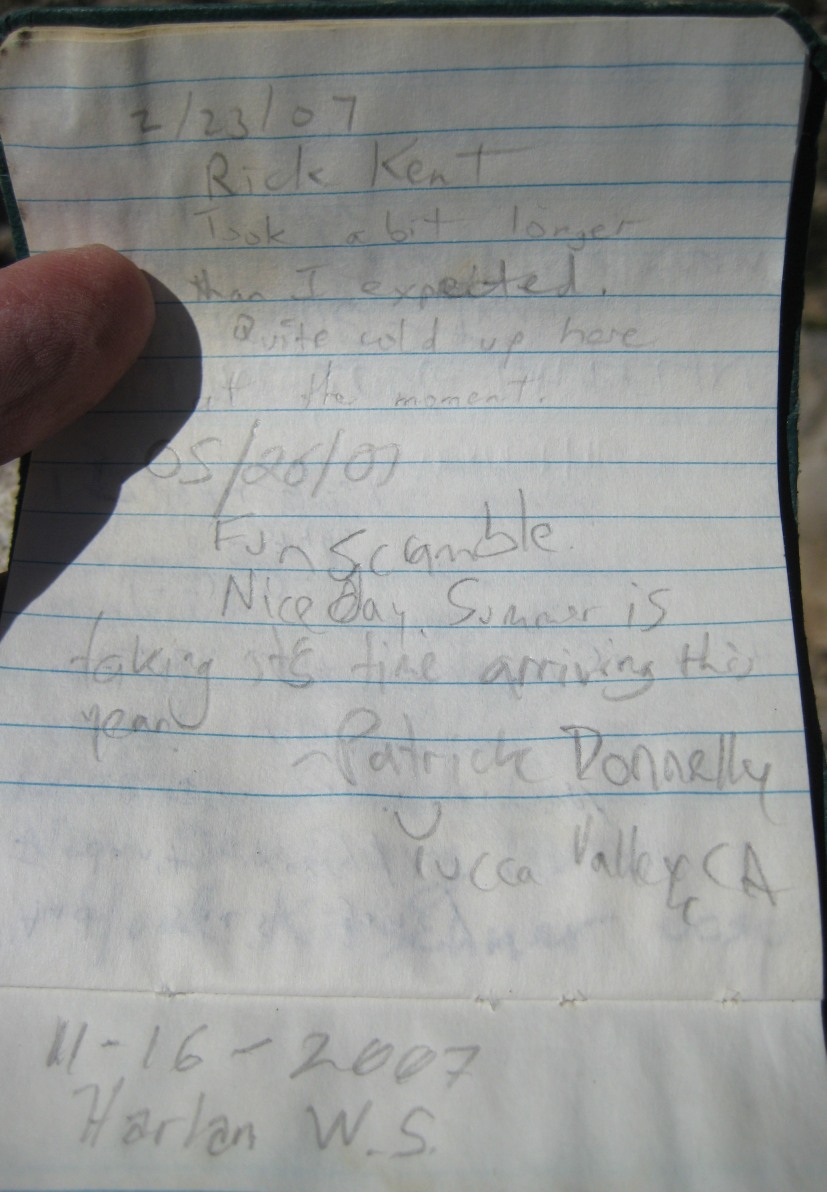 2/23/07
Rick Kent
Took a bit longer
than I expected.
Quite cold up here
at the moment.
05/26/07
Fun Scramble.
Nice day. Summer is
taking its time arriving this
year
~Patrick Donnelly
Yucca Valley, CA
11-16-2007
Harlan W.S.